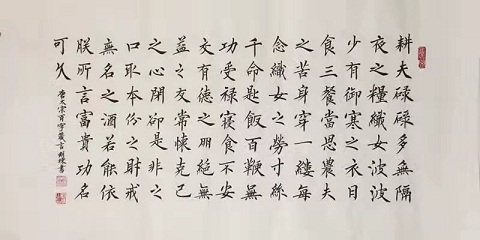 耕夫碌碌多無隔
夜之糧織女波波
少有御寒之衣日
食三餐當思農夫
之苦身穿一縷每
念織女之勞寸絲
千命匙飯百鞭無
功受禄寢食不安
交有德之朋絕無
益之交常懷克己
之心閉卻是非之
口取本份之財戒
無名之酒若能依
朕所言富貴功名
可久
唐太宗百字箴言 書